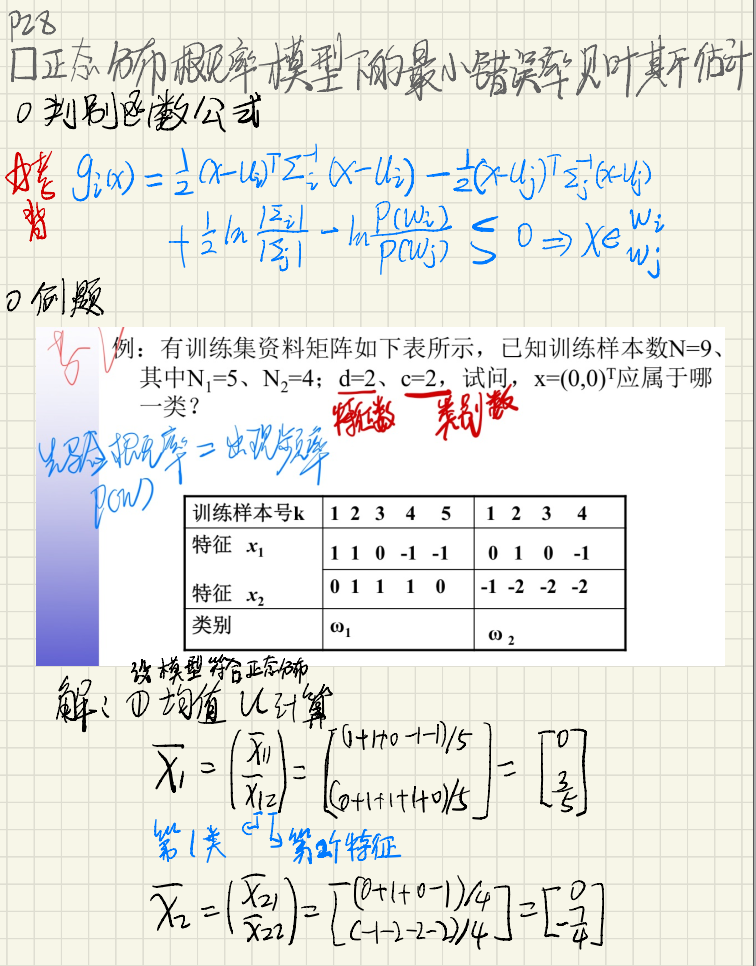 P28
口正态分布概率模型下的最小错误率贝叶斯估计
o 判别函数公式
必考 背
gᵢ(x) = 1/2 (x-uᵢ)ᵀ Σᵢ⁻¹ (x-uᵢ) - 1/2 (x-uⱼ)ᵀ Σⱼ⁻¹ (x-uⱼ)
+ 1/2 ln |Σᵢ|/|Σⱼ| - ln P(wᵢ)/P(wⱼ) ≶ 0 ⇒ x∈ wᵢ wⱼ
o 例题
例：有训练集资料矩阵如下表所示，已知训练样本数N=9、
其中N₁=5、N₂=4；d=2、c=2，试问，x=(0,0)ᵀ应属于哪
一类？
特征数 类别数
先验概率 = 出现频率
P(w)
训练样本号k 1 2 3 4 5 1 2 3 4
特征 x₁ 1 1 0 -1 -1 0 1 0 -1
特征 x₂ 0 1 1 1 0 -1 -2 -2 -2
类别 ω₁ ω₂
设模型符合正态分布
解：① 均值 u 计算
X̄₁ = (X̄₁₁ X̄₁₂) = [(1+1+0-1-1)/5 (0+1+1+1+0)/5] = [0 3/5]
第1类 第2个特征
X̄₂ = (X̄₂₁ X̄₂₂) = [(0+1+0-1)/4 (-1-2-2-2)/4] = [0 -7/4]